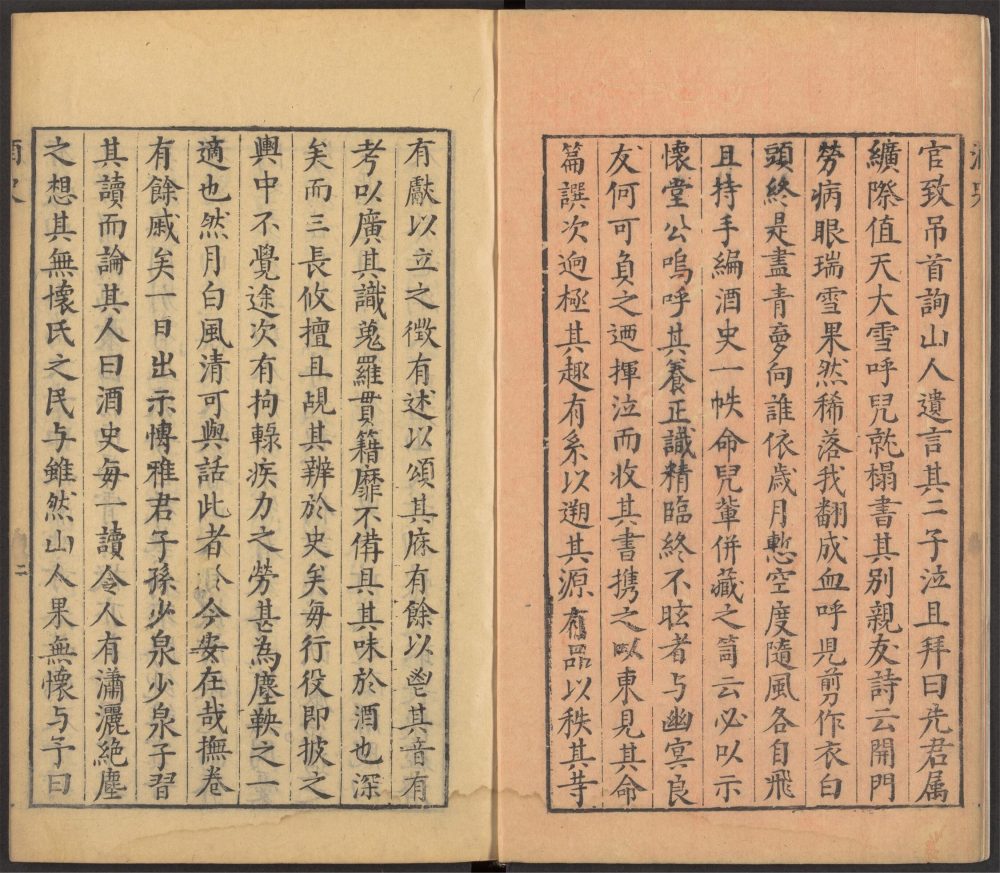 官致吊首詢山人遺言其二子泣且拜曰先君属
纊際值天大雪呼兒就榻書其別親友詩云開門
勞病眼瑞雪果然稀落我翻成血呼児剪作衣白
頭終是盡青夢向誰依歳月慙空度隨風各自飛
且持手編酒史一帙命兒輩併藏之笥云必以示
懷堂公嗚呼其養正識精臨終不眩者与幽冥良
友何可負之迺揮泣而收其書携之以東見其命
篇譔次逈極其趣有系以遡其源有品以秩其等
有獻以立之徵有述以頌其庥有餘以鬯其音有
考以廣其識蒐羅貫籍靡不備具其味於酒也深
矣而三長攸擅且覘其辨於史矣每行役即披之
輿中不覺途次有拘轅疾力之勞甚為塵鞅之一
適也然月白風清可與話此者今安在哉撫卷
有餘戚矣一日出示愽雅君子孫少泉少泉子習
其讀而論其人曰酒史每一讀令人有瀟灑絶塵
之想其無懷氏之民与雖然山人果無懷与予曰
二